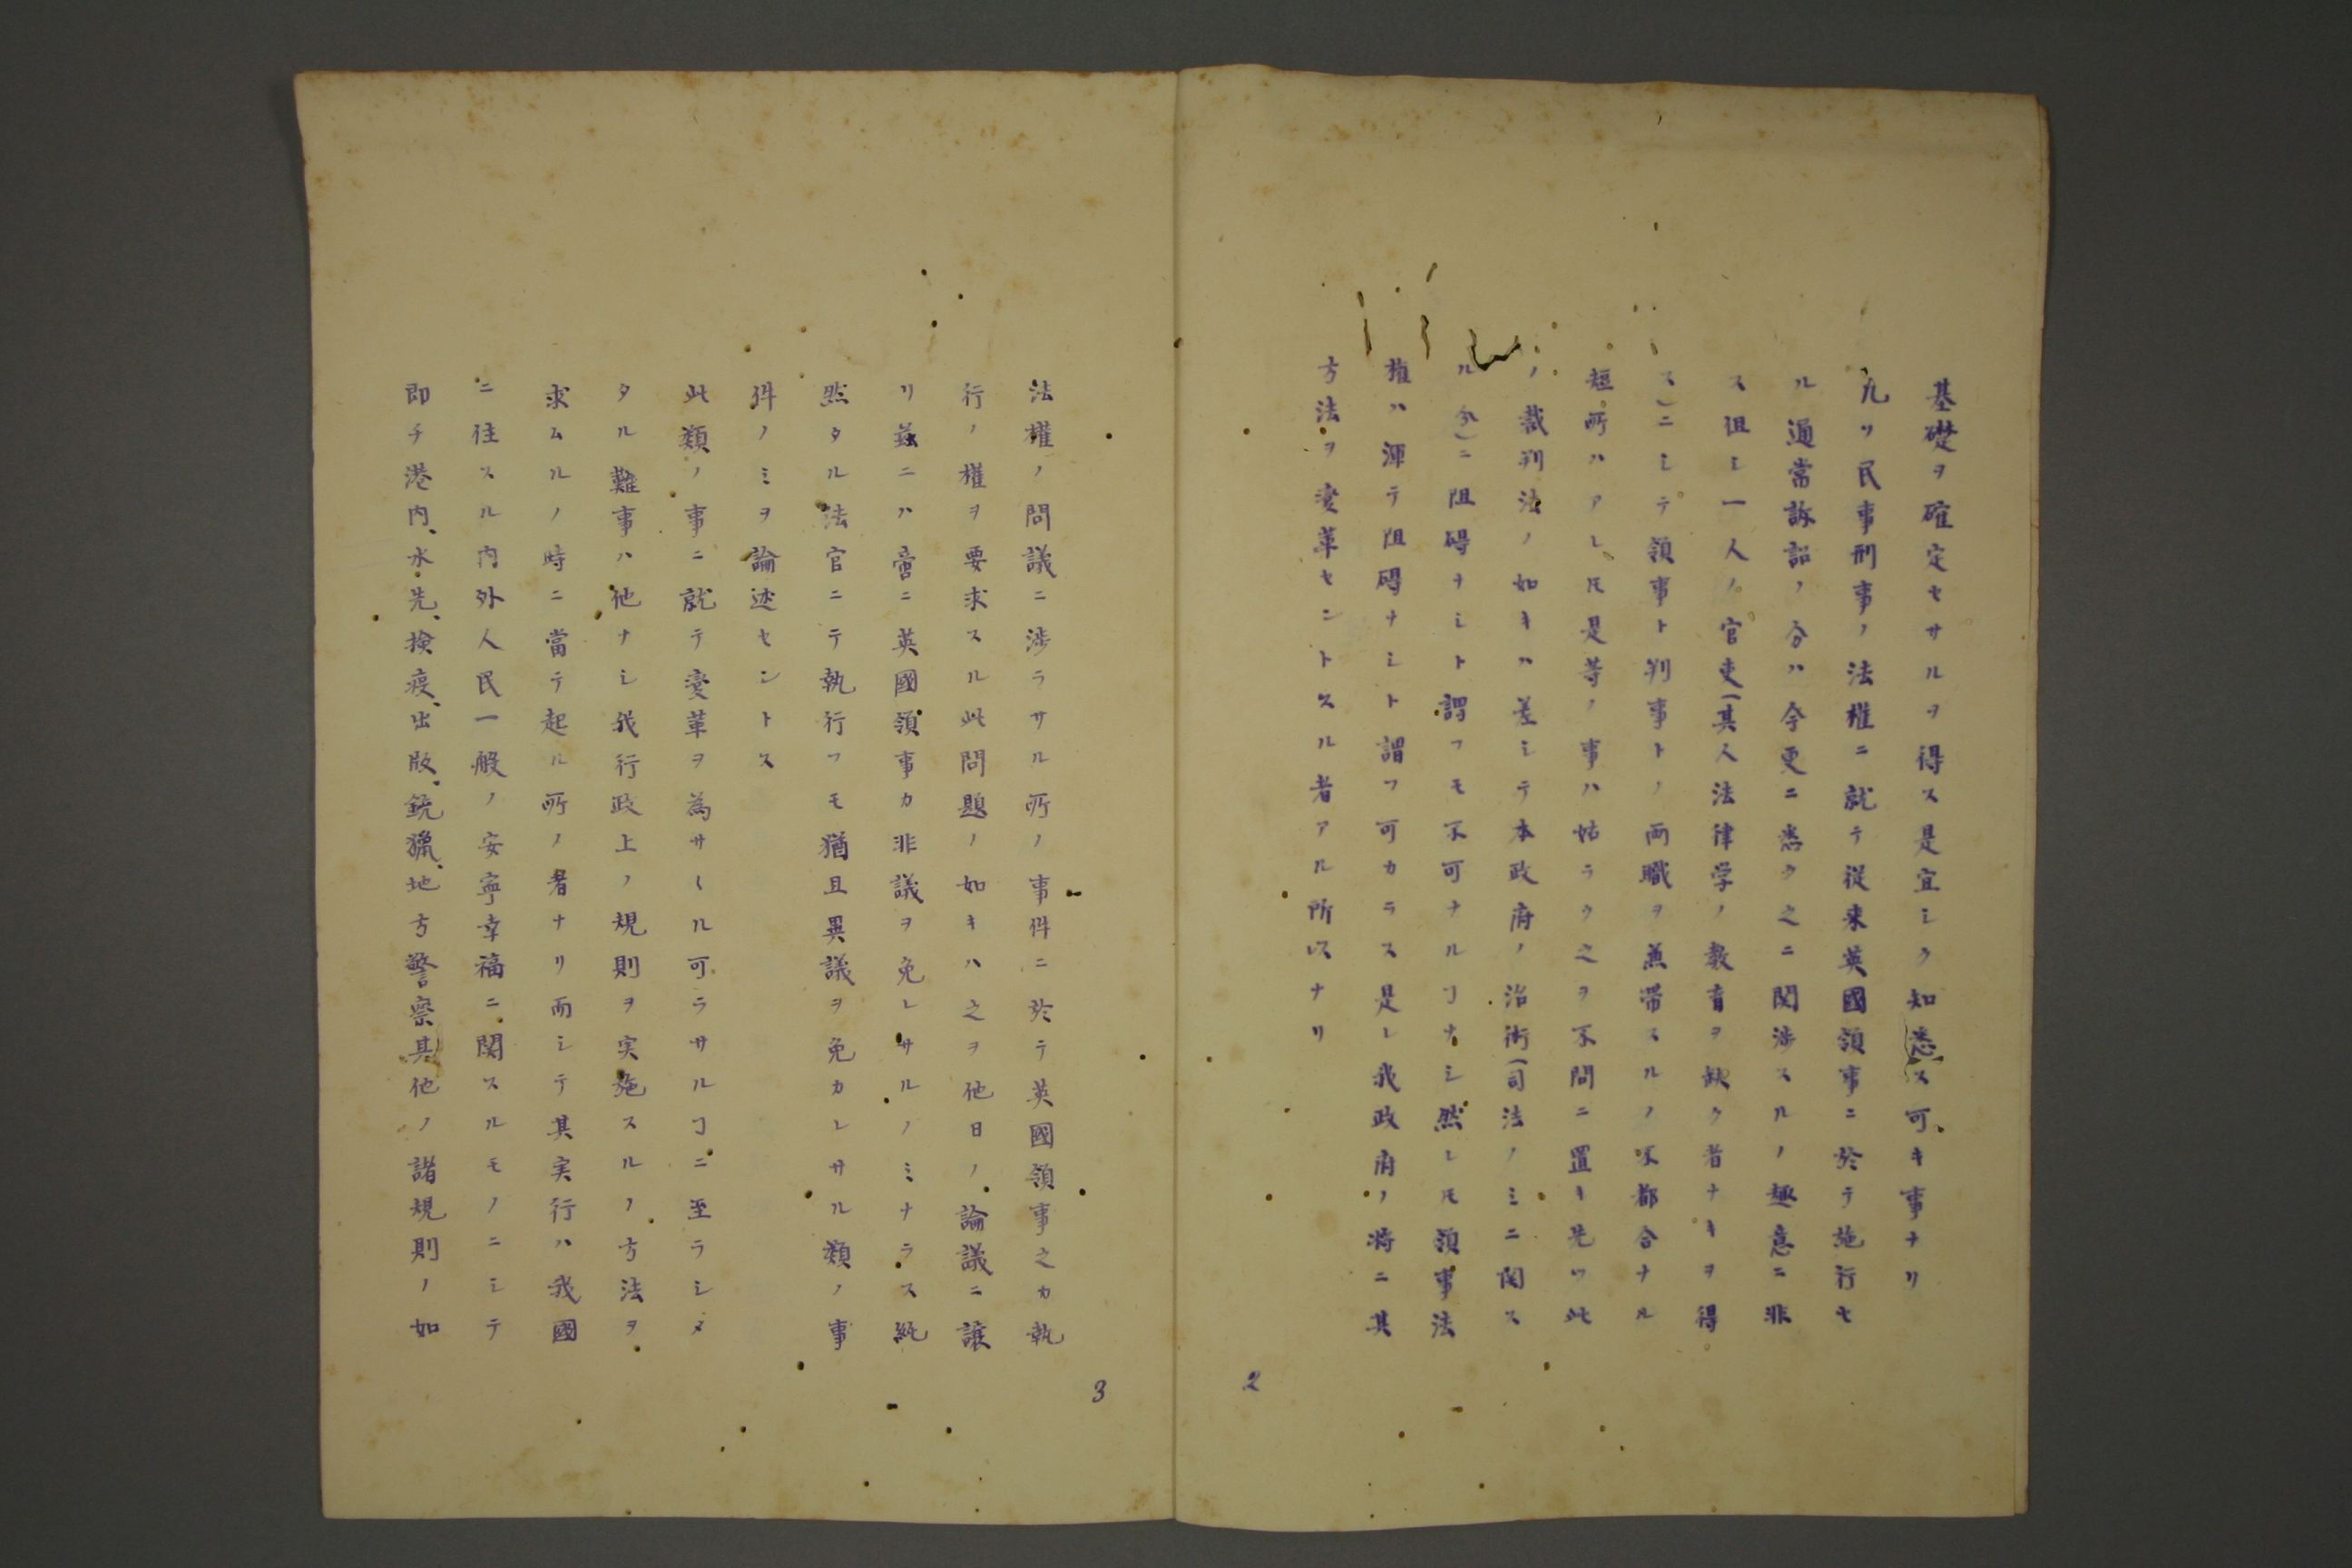 基礎ヲ確定セサルヲ得ス是宜シク知悉ス可キ事ナリ
凡ソ民事刑事ノ法権ニ就テ従来英國領事ニ於テ施行セ
ル通常訴詔ノ分ハ今更ニ悉ク之ニ関渉スルノ趣意ニ非
ス但シ一人ノ官吏(其人法律学ノ教育ヲ缺ク者ナキヲ得
ス)ニシテ領事ト判事トノ両職ヲ兼帯スルノ不都合ナル
短所ハアレ𪜈是等ノ事ハ姑ラク之ヲ不問ニ置キ先ツ此
ノ裁判法ノ如キハ差シテ本政府ノ治術(司法ノミニ関ス
ル分)ニ阻碍ナシト謂フモ不可ナルヿナシ然レ𪜈領事法
権ハ渾テ阻碍ナシト謂フ可カラス是レ我政府ノ将ニ其
方法ヲ変革セントスル者アル所以ナリ
2
法権ノ問議ニ渉ラサル所ノ事件ニ於テ英國領事之カ執
行ノ権ヲ要求スル此問題ノ如キハ之ヲ他日ノ論議ニ譲
リ茲ニハ啻ニ英國領事カ非議ヲ免レサルノミナラス純
然タル法官ニテ執行フモ猶且異議ヲ免カレサル類ノ事
件ノミヲ論述セントス
此類ノ事ニ就テ変革ヲ為サヽル可ラサルヿニ至ラシメ
タル難事ハ他ナシ我行政上ノ規則ヲ実施スルノ方法ヲ
求ムルノ時ニ當テ起ル所ノ者ナリ而シテ其実行ハ我國
ニ住スル内外人民一般ノ安寧幸福ニ関スルモノニシテ
即チ港内、水先、検疫、出版、銃猟、地方警察其他ノ諸規則ノ如
3